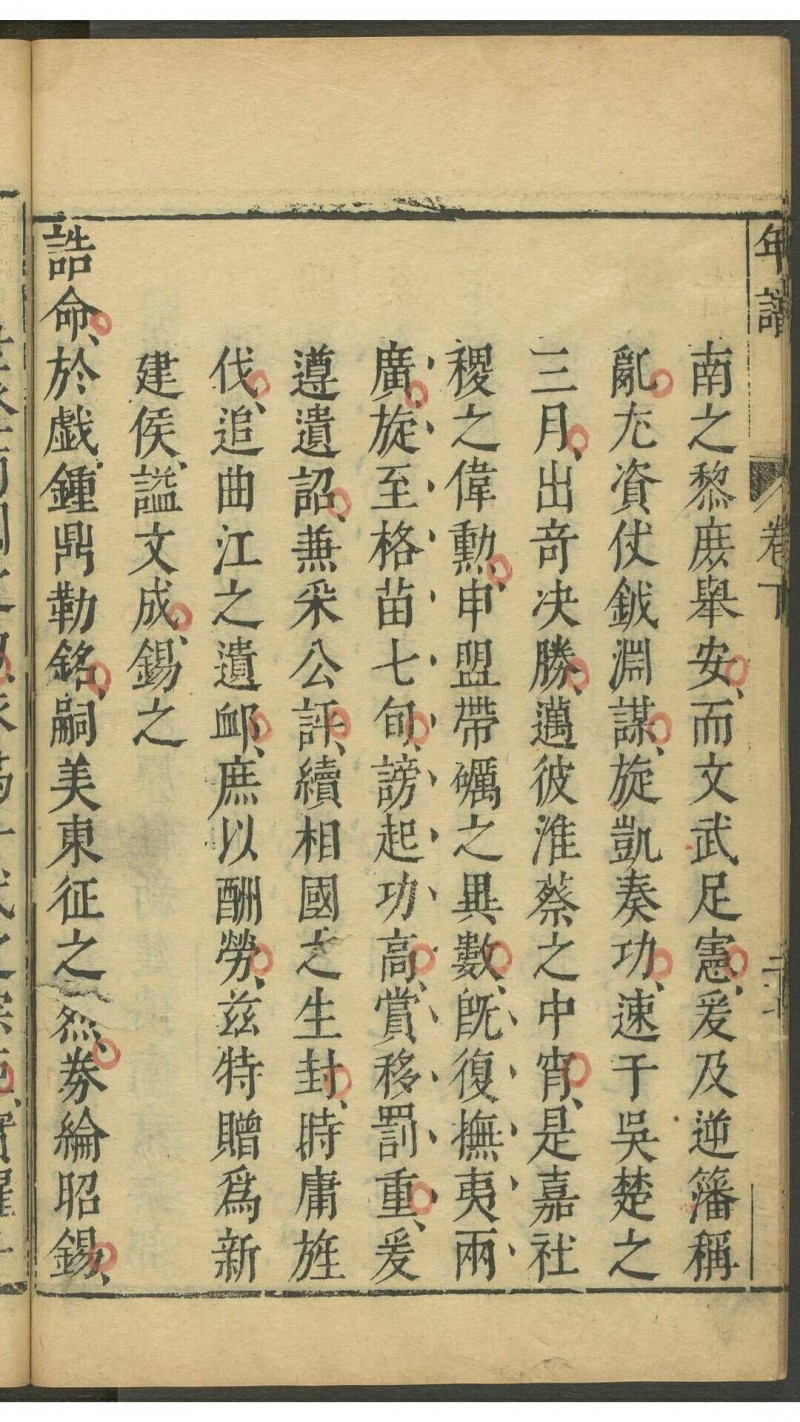 年譜 卷下
南之黎庶舉安而文武足憲爰及逆籓稱
亂尤資仗鉞淵謀旋凱奏功速于吳楚之
三月出奇决勝邁彼淮蔡之中宵是嘉社
稷之偉勳申盟帶礪之異數既復撫夷兩
廣旋至格苗七旬謗起功高賞移罰重爰
遵遺詔兼采公評續相國之生封時庸旌
伐追曲江之遺卹庶以酬勞茲特贈爲新
建侯謚文成錫之
誥命於戲鍾鼎勒銘嗣美東征之 券綸昭錫